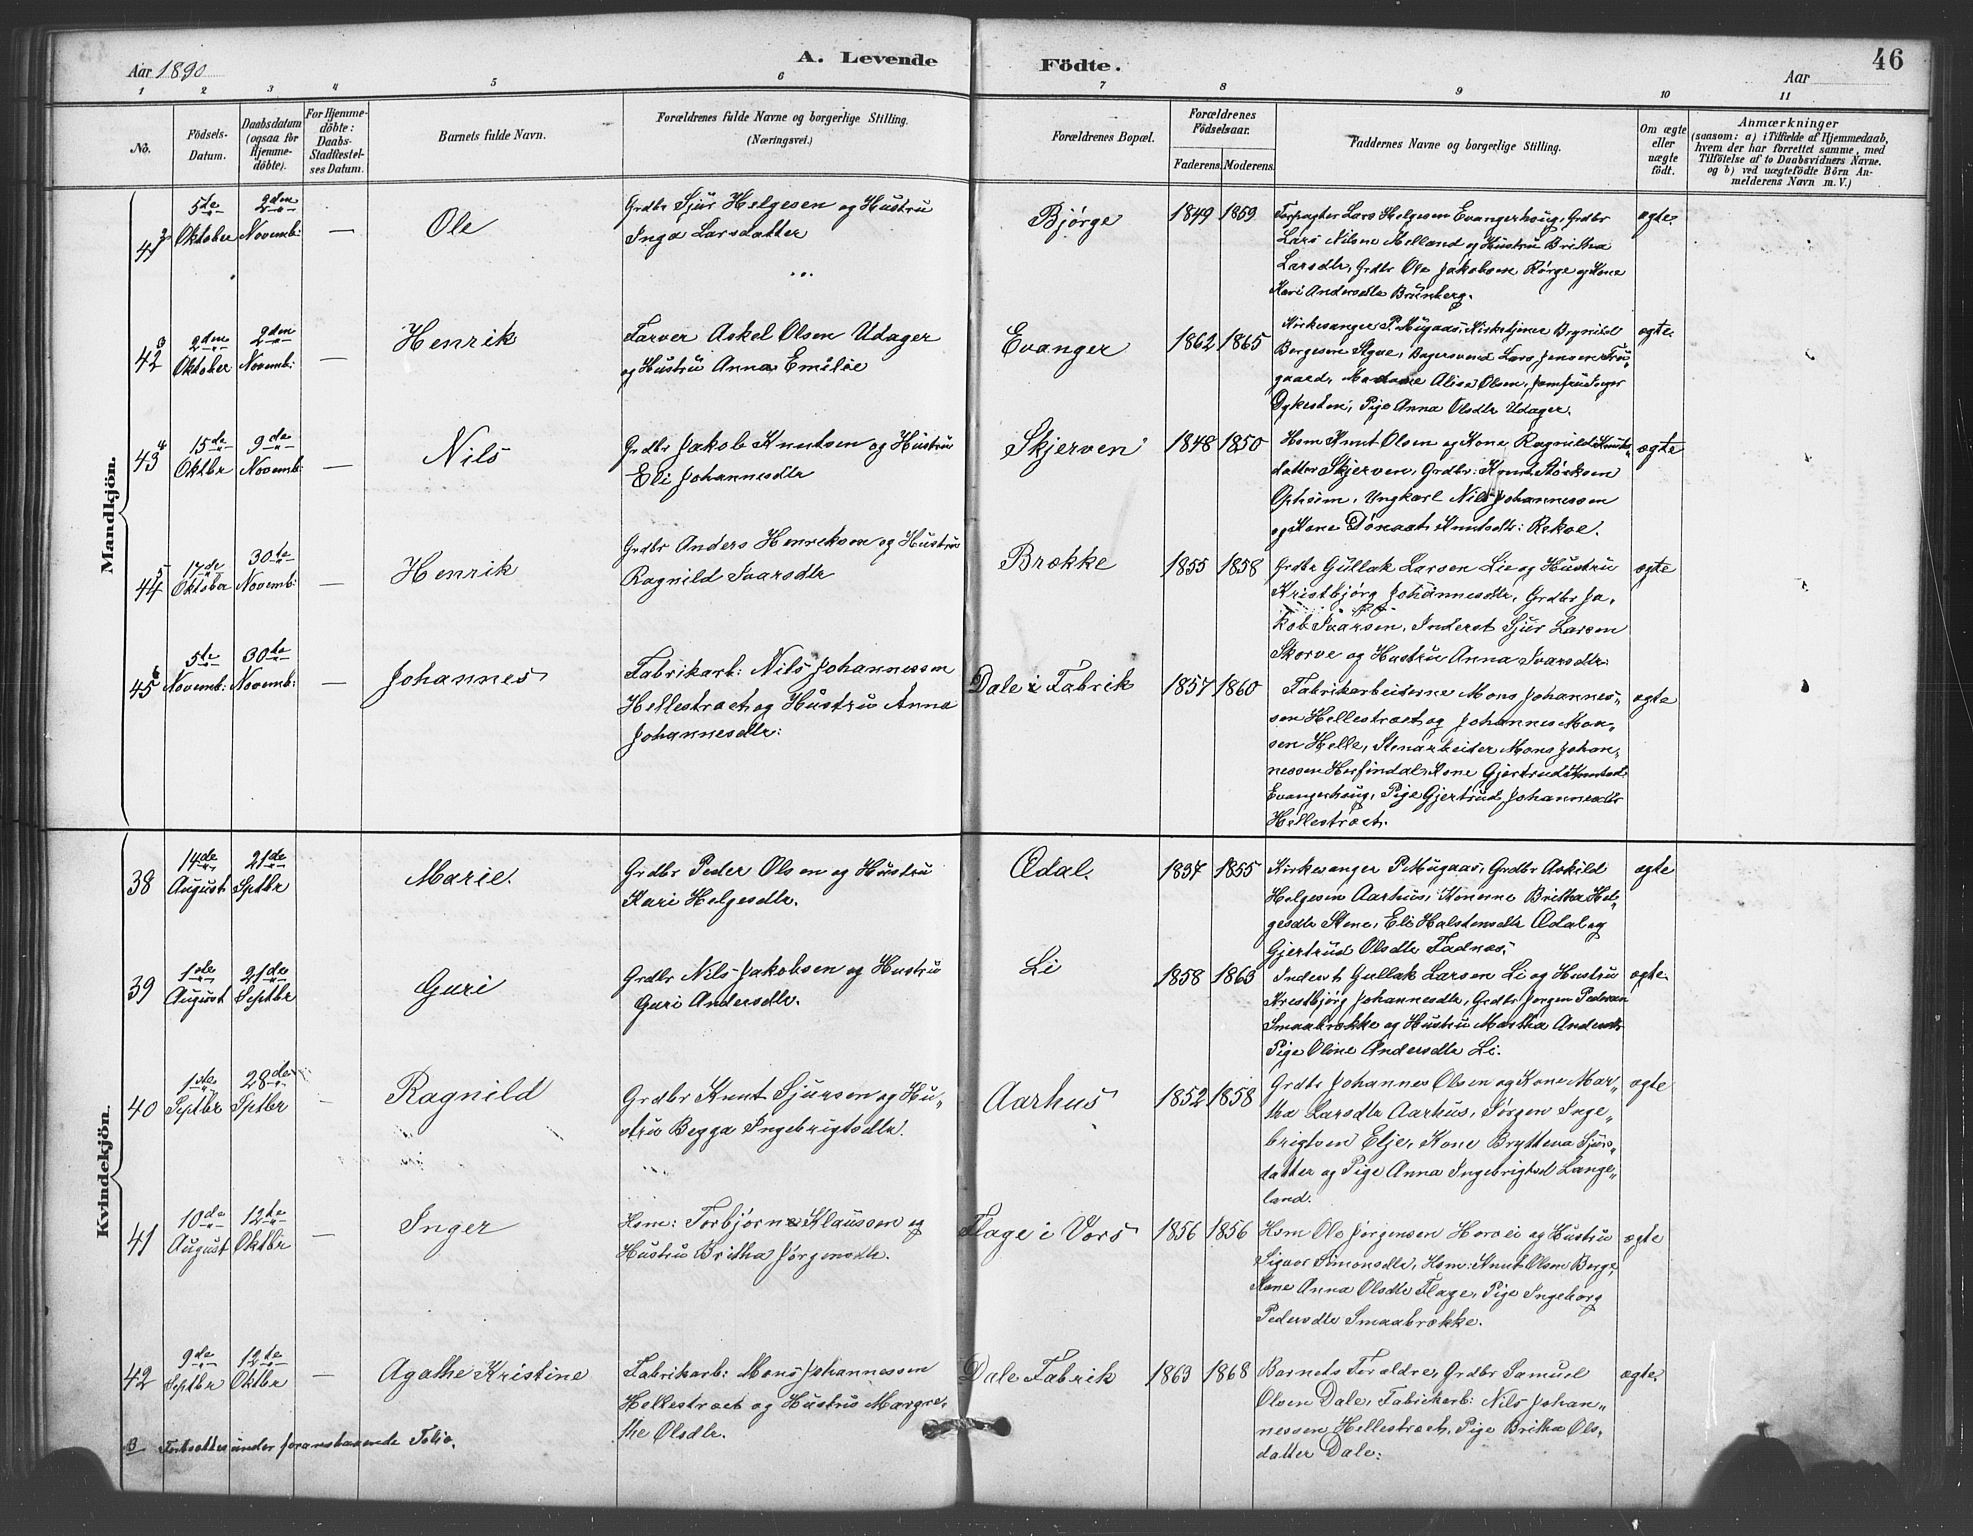 Aar 1890
A. Levende Födte.
46
Aar
1 2 3 4 5 6 7 8 9 10 11
No.
Födsels-Datum.
Daabsdatum (ogsaa for Hjemme-döbte).
For Hjemme-döbte: Daabs-Stadfæstel-ses Datum.
Barnets fulde Navn.
Forældrenes fulde Navne og borgerlige Stilling.
(Næringsvei.)
Forældrenes Bopæl.
Forældrenes Födselsaar.
Faderens. Moderens.
Faddernes Navne og borgerlige Stilling.
Om ægte eller uægte födt.
Anmærkninger
(saasom: a) i Tilfælde af Hjemmedaab,
hvem der har forrettet samme, med
Tilföielse af to Daabsvidners Navne.
og b) ved uægtefödte Börn An-
melderens Navn m. V.)
Mandkjön.
5te Oktober
2den Novemb:
—
Ole
Grdbr Sjur Helgesen og Hustru
Inga Larsdatter
Bjørge
1849 1859
Forpagter Lars Helgesen Evangerhoug, Grdbr
Lars Nilsen Helland og Hustru Britha
Larsdtr, Grdbr Ole Jakobsen Rørge og Kone
Kari Andersdtr
ægte
42
Oktober
2den Novemb:
—
Henrik
Farver Askel Olsen Udager
og Hustru Anna Emilie
Evanger
1862 1865
Kirkesanger P. Mugaas, Kirketjener Brynild
Bergesen Lars Jensen
gaard, Madame Alisa Olsen, Jomfru Inger
Dykesten, Pige Anna Olsdtr Udager.
ægte
43
15de Oktbr
9de Novemb:
—
Nils
Grdbr Jakob Knutsen og Hustru
Eli Johannesdtr
Skjerven
1848 1850
Hsm Knut Olsen og Kone Ragnild Knuts-
datter Skjerven, Grdbr: Knut
Opheim, Ungkarl Nils Johannessen
og Kone Knutsdtr:
ægte
44
17de Oktober
30te Novemb:
—
Henrik
Grdbr Anders Henriksen og Hustru
Ragnild Ivarsdtr
Brække
1855 1858
Grdbr Gullak Larsen Lie og Hustru
Kristbjørg Johannesdtr, Grdbr Ja-
kob Ivarsen, Inderst Sjur Larsen
Skorve og Hustru Anna Ivarsdtr:
ægte
45
5te Novemb:
30te Novemb:
—
Johannes
Fabrikarb: Nils Johannessen
Hellestræet og Hustru Anna
Johannesdtr:
Dale i Fabrik
1857 1860
Fabrikarbeiderne Mons Johannes-
sen Hellestræet og Johannes Mon-
sen Helle, Stenarbeider Mons Johan-
nessen Herfindal, Kone Gjertrud Knutsd:
Evangerhoug, Pige Gjertrud Johannesdtr
Hellestræet.
ægte
Kvindekjön.
38
14de August
21de Sptbr
Marie.
Grdbr Peder Olsen og Hustru
Kari Helgesdtr.
Ædal.
1837 1855
Kirkesanger P. Mugaas, Grdbr Askild
Helgesen Aarhus, Konerne Britha Hel-
gesdtr Stene, Eli Halstensdtr Ædal og
Gjertrud Olsdtr Fadnæs.
ægte
39
1ste August
21de Septbr
Guri
Grdbr Nils Jakobsen og Hustru
Guri Andersdtr.
Li
1858 1863
Inderst Gullak Larsen Li og Hustru
Kristbjørg Johannesdtr, Grdbr Jørgen Pedersen
Smaabrække og Hustru Martha Andersdtr
Pige Oline Andersdtr Li.
ægte
40
1ste Septbr
28de Sptbr
—
Ragnild
Grdbr Knut Sjursen og Hu-
stru Begga Ingebrigtsdtr.
Aarhus
1852 1858
Grdbr Johannes Olsen og Kone Mar-
tha Larsdtr Aarhus, Jørgen Inge-
brigtsen Kone Brytteva Sjurs-
datter og Pige Anna Ingebrigtsd Lange-
land.
ægte
41
10de August
12te Oktbr
—
Inger
Hsm: Torbjørn Klaussen og
Hustru Britha Jørgensdtr.
Flage i Vors
1856 1856
Hsm Ole Jørgensen Horvei og Hustru
Simonsdtr, Hsm: Knut Olsen Berge
Kone Anna Olsdtr Flage, Pige Ingeborg
Pedersdtr Smaabrække.
ægte
42
9de Septbr
12te Oktbr
—
Agathe Kristine
Fabrikarb: Mons Johannessen
Hellestræet og Hustru Margre-
the Olsdtr.
Dale Fabrik
1863 1868
Barnets Forældre, Grdbr Samuel
Olsen Dale, Fabrikarb: Nils Johan-
nessen Hellestræet, Pige Britha Ols-
datter Dale:
ægte
Fortsættes under foranstaaende Folio.